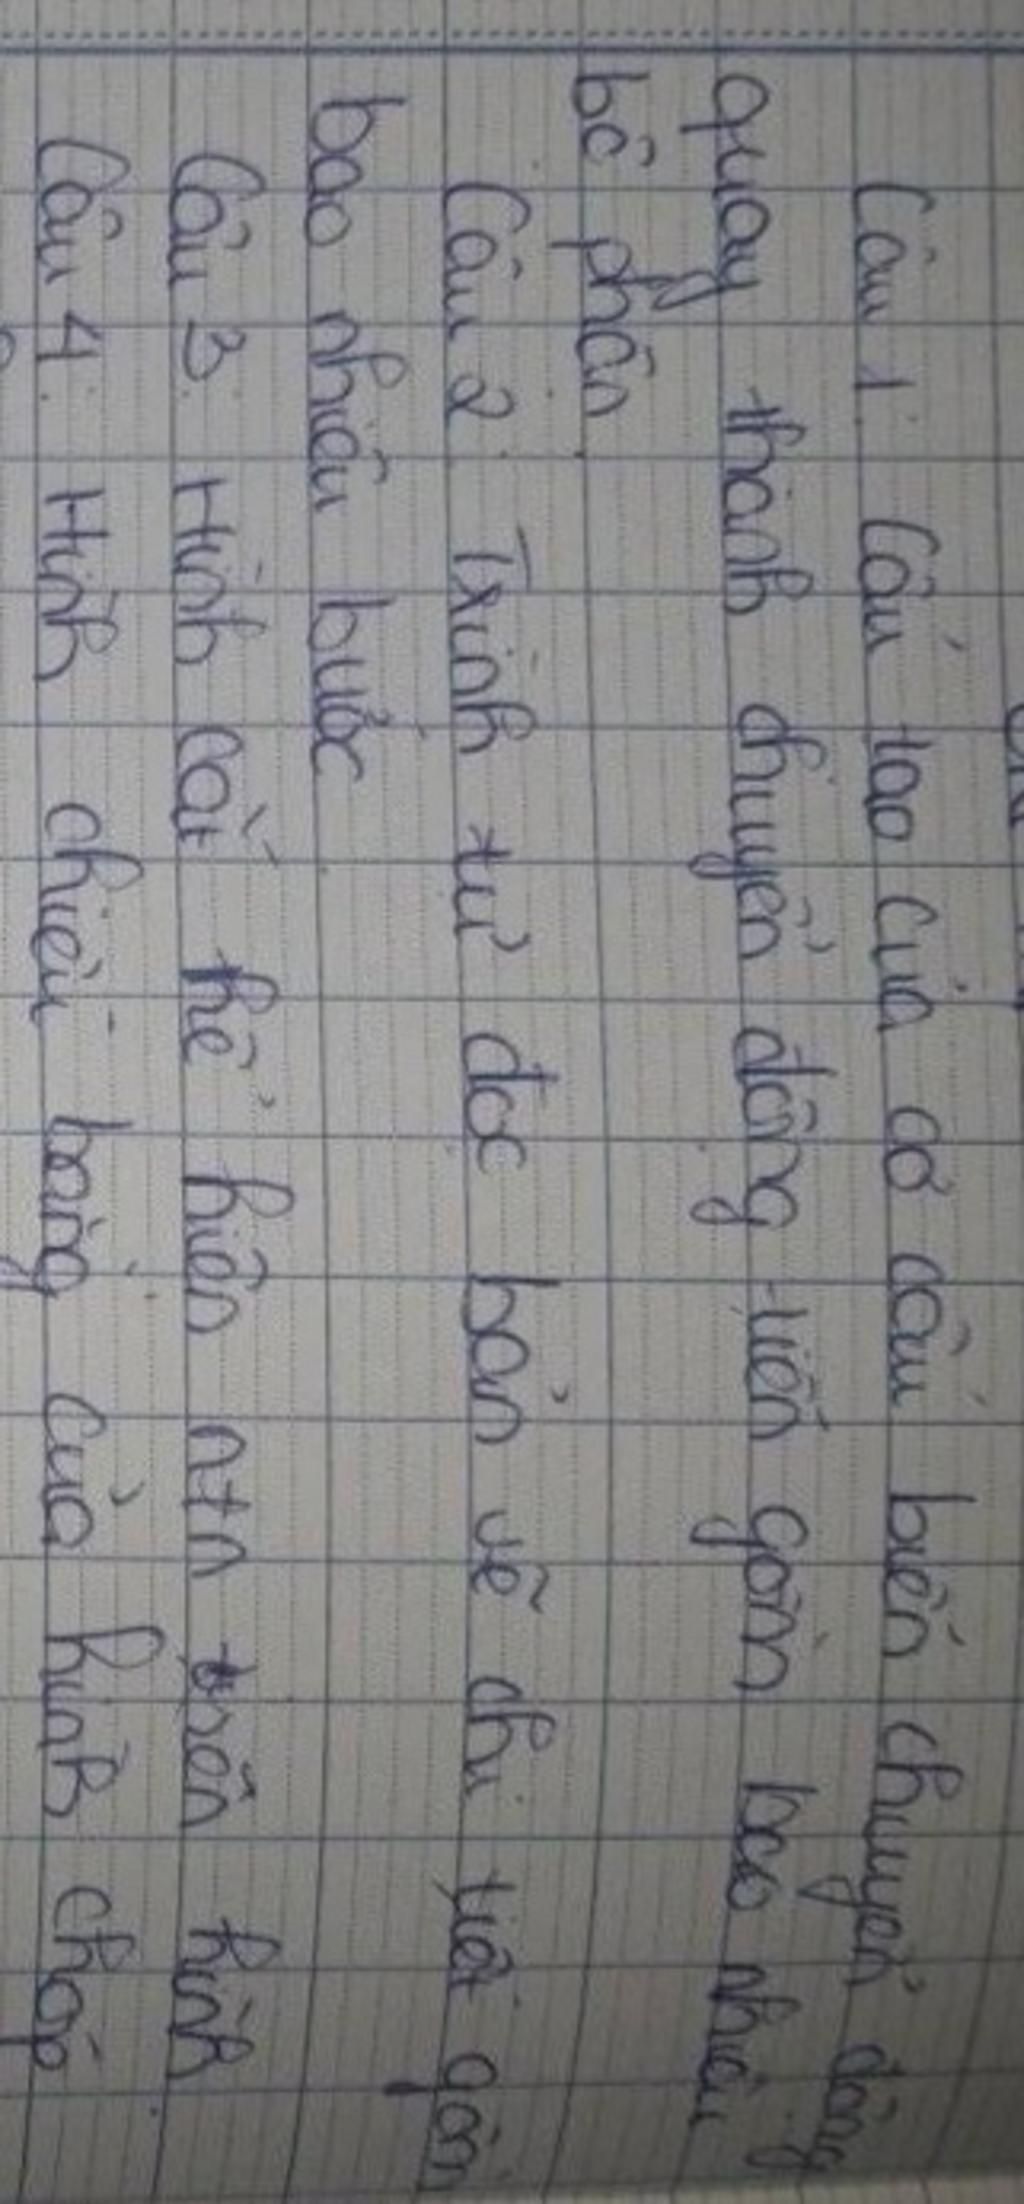 Câu 1: Cấu tạo của cơ cấu biến chuyển động
quay thành chuyển động tiến gồm bao nhiêu
bộ phận
Câu 2: Trình tự đọc bản vẽ chi tiết gồm
bao nhiêu bước
Câu 3: Hình cắt thể hiện ntn trên hình
Câu 4: Hình chiếu bằng của hình chóp